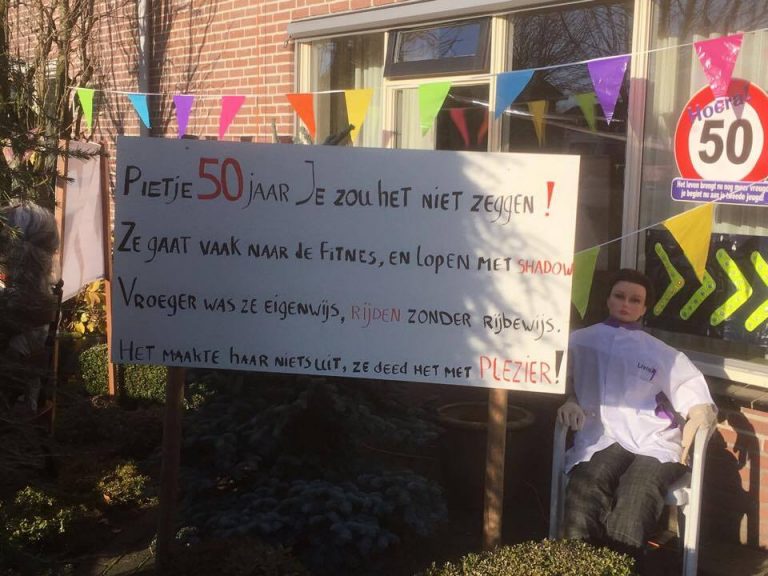 Hoera!
50
Het leven brengt nu nog meer vreugd
je begint nu aan je tweede jeugd
PIETJE 50 JAAR JE ZOU HET NIET ZEGGEN !
ZE GAAT VAAK NAAR DE FITNES, EN LOPEN MET SHADOW
VROEGER WAS ZE EIGENWIJS, RIJDEN ZONDER RIJBEWIJS.
HET MAAKTE HAAR NIETS UIT, ZE DEED HET MET PLEZIER!